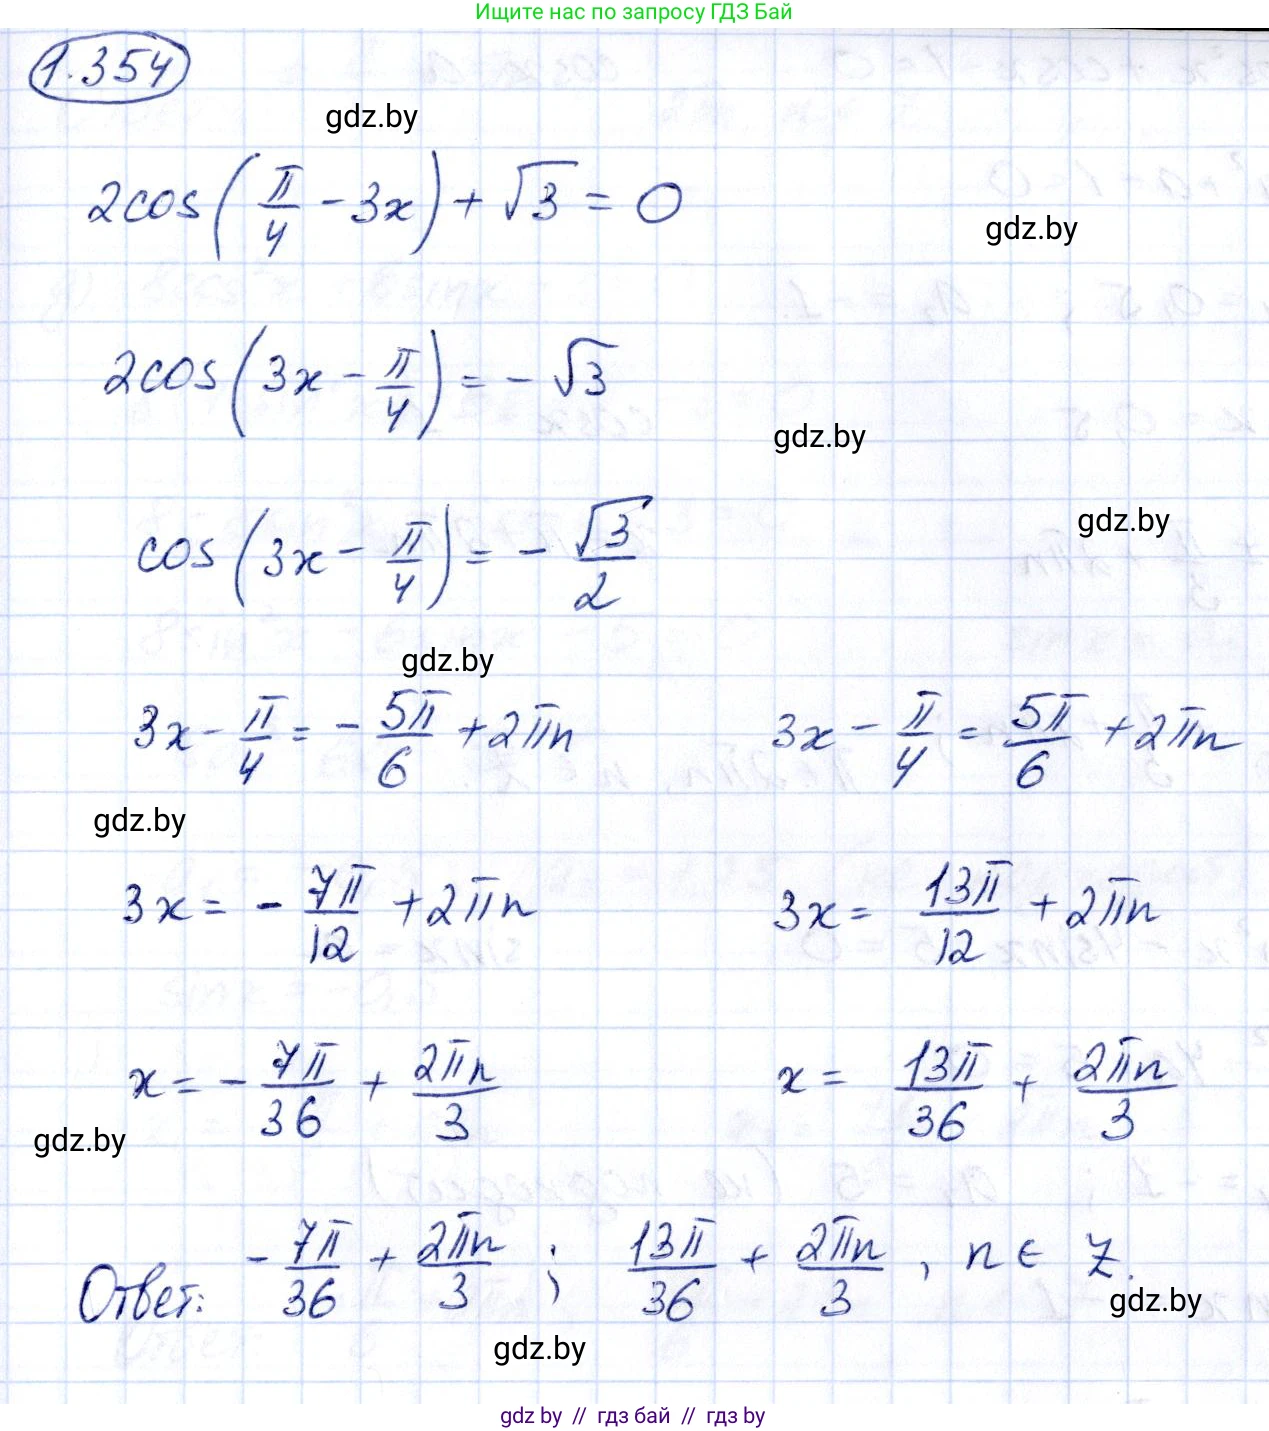 Ищите нас по запросу ГДЗ Бай
1.354
gdz.by
2cos(π/4 - 3x) + √3 = 0
gdz.by
2cos(3x - π/4) = - √3
gdz.by
cos(3x - π/4) = - √3/2
gdz.by
gdz.by
3x - π/4 = - 5π/6 + 2πn    3x - π/4 = 5π/6 + 2πn
gdz.by
3x = - 7π/12 + 2πn    3x = 13π/12 + 2πn
x = - 7π/36 + 2πn/3    x = 13π/36 + 2πn/3
gdz.by
Ответ: - 7π/36 + 2πn/3 ; 13π/36 + 2πn/3 , n ∈ Z.
gdz.by
gdz.by
gdz by // гдз бай // гдз by